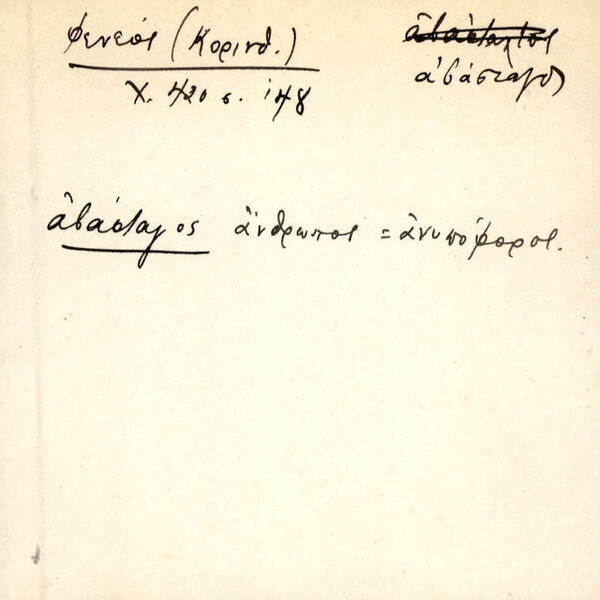 Φενεός (Κορινθ.)
χ. 420 σ. 148
ἀβάσταγος
ἀβάσταγος ἄνθρωπος = ἀνυπόφορος.